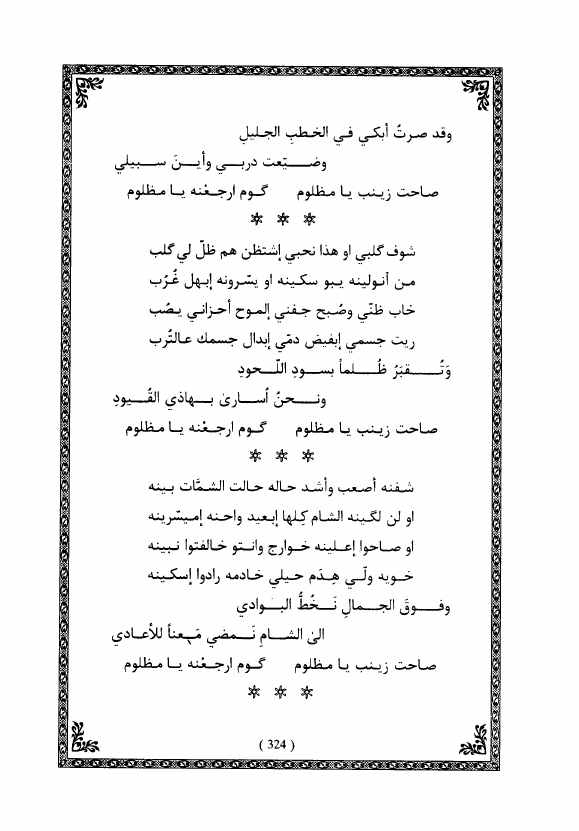 وقد صرتُ أبكي في الخطبِ الجليلِ
وضيّعت دربي وأينَ سبيلي
صاحت زينب يا مظلوم گوم ارجعْنه يا مظلوم
✡ ✡ ✡
شوف گلبي او هذا نحبي إشتظن هم ظلّ لي گلب
من آنولينه يبو سكينه او يسْرونه إبهل غُرُب
خاب ظنّي وصُبح جفني إلموح أحزاني يصُب
ريت جسمي إبفيض دمّي إبدال جسمك عالتُرب
وَتُقبَرُ ظُلماً بسودِ اللّحودِ
ونحنُ أسارىٰ بهاذي القُيودِ
صاحت زينب يا مظلوم گوم ارجعْنه يا مظلوم
✡ ✡ ✡
شفنه أصعب وأشد حاله حالت الشمَّات بينه
او لن لگينه الشام كِلها إبعيد واحنه إميسّرينه
او صاحوا إعلينه خوارج وانتو خالفتوا نبينه
خويه ولّي هِدَم حيلي خادمه رادوا إسكينه
وفوقَ الجمالِ نَخُطُّ البوادي
الىٰ الشامِ نَمضي مَعناً للأعادي
صاحت زينب يا مظلوم گوم ارجعْنه يا مظلوم
✡ ✡ ✡
( 324 )